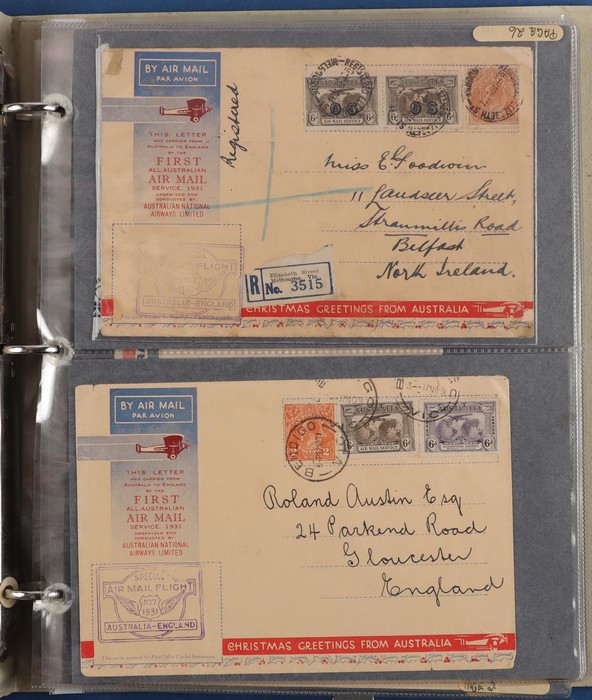 PAGE 26
BY AIR MAIL
PAR AVION
THIS LETTER
WAS CARRIED FROM
AUSTRALIA TO ENGLAND
BY THE
FIRST
ALL-AUSTRALIAN
AIR MAIL
SERVICE, 1931
ORGANISED AND
CONDUCTED BY:
AUSTRALIAN NATIONAL
AIRWAYS LIMITED
Registered
6d OS
6d OS
AIR MAIL SERVICE
AIR MAIL SERVICE
Miss E. Goodwin
11 Landseer Street,
Stranmillis Road
Belfast
North Ireland.
MAIL FLIGHT
AUSTRALIA-ENGLAND
R
Elizabeth Street
Melbourne, Vic
No. 3515
CHRISTMAS GREETINGS FROM AUSTRALIA
BY AIR MAIL
PAR AVION
THIS LETTER
WAS CARRIED FROM
AUSTRALIA TO ENGLAND
BY THE
FIRST
ALL-AUSTRALIAN
AIR MAIL
SERVICE, 1931
ORGANISED AND
CONDUCTED BY:
AUSTRALIAN NATIONAL
AIRWAYS LIMITED
BENDIGO
6d
6d
AUSTRALIA
Roland Austin Esq
24 Parkend Road
Gloucester
England
SPECIAL
AIR MAIL FLIGHT
NOV
1931
AUSTRALIA-ENGLAND
CHRISTMAS GREETINGS FROM AUSTRALIA